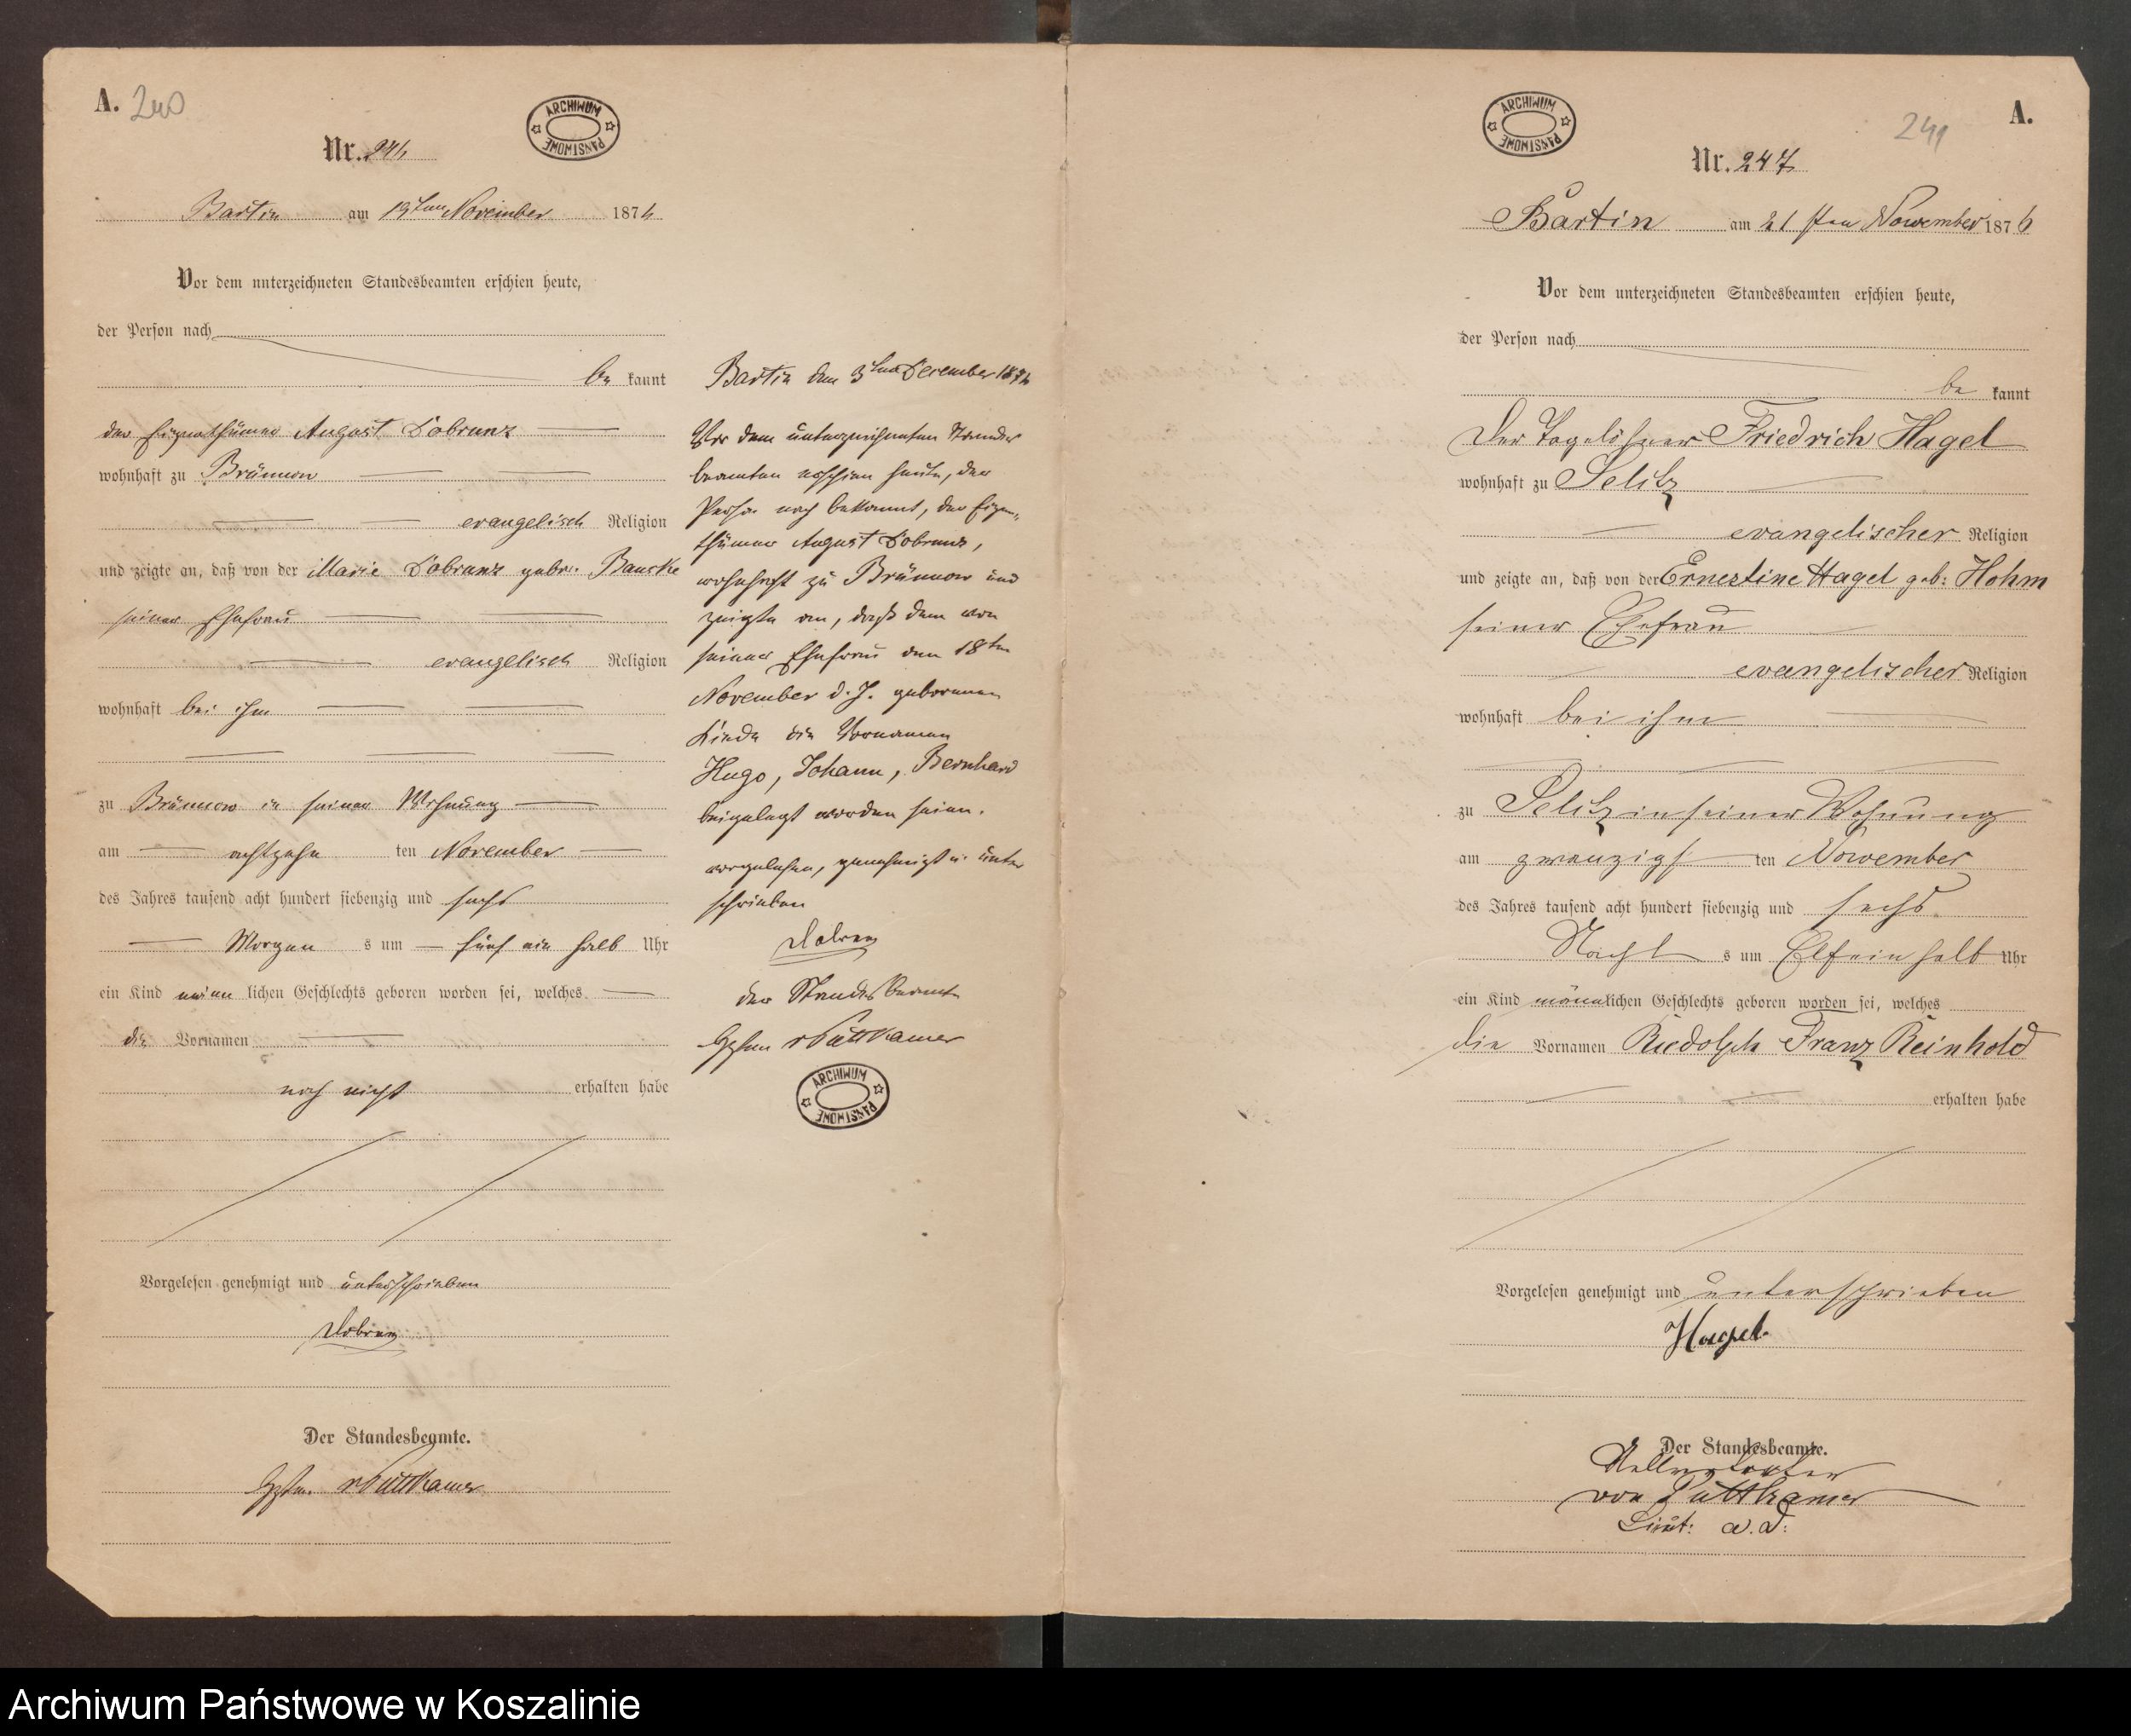 A. 240
ARCHIWUM PAŃSTWOWE
Nr. 246
Bartin am 19ten November 1876
Vor dem unterzeichneten Standesbeamten erschien heute,
der Person nach
be kannt
der Eigenthümer August Dobranz
wohnhaft zu Brünnow
evangelisch Religion
und zeigte an, daß von der Marie Dobranz gebor. Bancke
seiner Ehefrau
evangelisch Religion
wohnhaft bei ihm
zu Brünnow in seiner Wohnung
am achtzehn ten November
des Jahres tausend acht hundert siebenzig und sechs
Morgen s um fünf ein halb Uhr
ein Kind männ lichen Geschlechts geboren worden sei, welches
die Vornamen
noch nicht erhalten habe
Vorgelesen genehmigt und unterschrieben
Dobranz
Der Standesbeamte.
vPuttkamer
Bartin den 3ten December 1876
Vor dem unterzeichneten Standes
beamten erschien heute, der
Person nach bekannt, der Eigen„
thümer August Dobranz,
wohnhaft zu Brünnow und
zeigte an, daß dem von
seiner Ehefrau den 18ten
November d. J. geborenen
Kinde die Vornamen
Hugo, Johann, Bernhard
beigelegt worden seien.
vorgelesen, genehmigt u. unter
schrieben
Dobranz
der Standesbeamte
vPuttkamer
ARCHIWUM PAŃSTWOWE
ARCHIWUM PAŃSTWOWE
241 A.
Nr. 247
Bartin am 21 sten November 1876
Vor dem unterzeichneten Standesbeamten erschien heute,
der Person nach
be kannt
Der Tagelöhner Friedrich Hagel
wohnhaft zu Selitz
evangelischer Religion
und zeigte an, daß von der Ernestine Hagel geb: Hohm
seiner Ehefrau
evangelischer Religion
wohnhaft bei ihm
zu Selitz in seiner Wohnung
am zwanzigs ten November
des Jahres tausend acht hundert siebenzig und sechs
Nacht s um Elf ein halb Uhr
ein Kind männlichen Geschlechts geboren worden sei, welches
die Vornamen Rudolph Franz Reinhold
erhalten habe
Vorgelesen genehmigt und unterschrieben
Hagel
Der Standesbeamte.
von Puttkamer
Lieut: a. D:
Archiwum Państwowe w Koszalinie